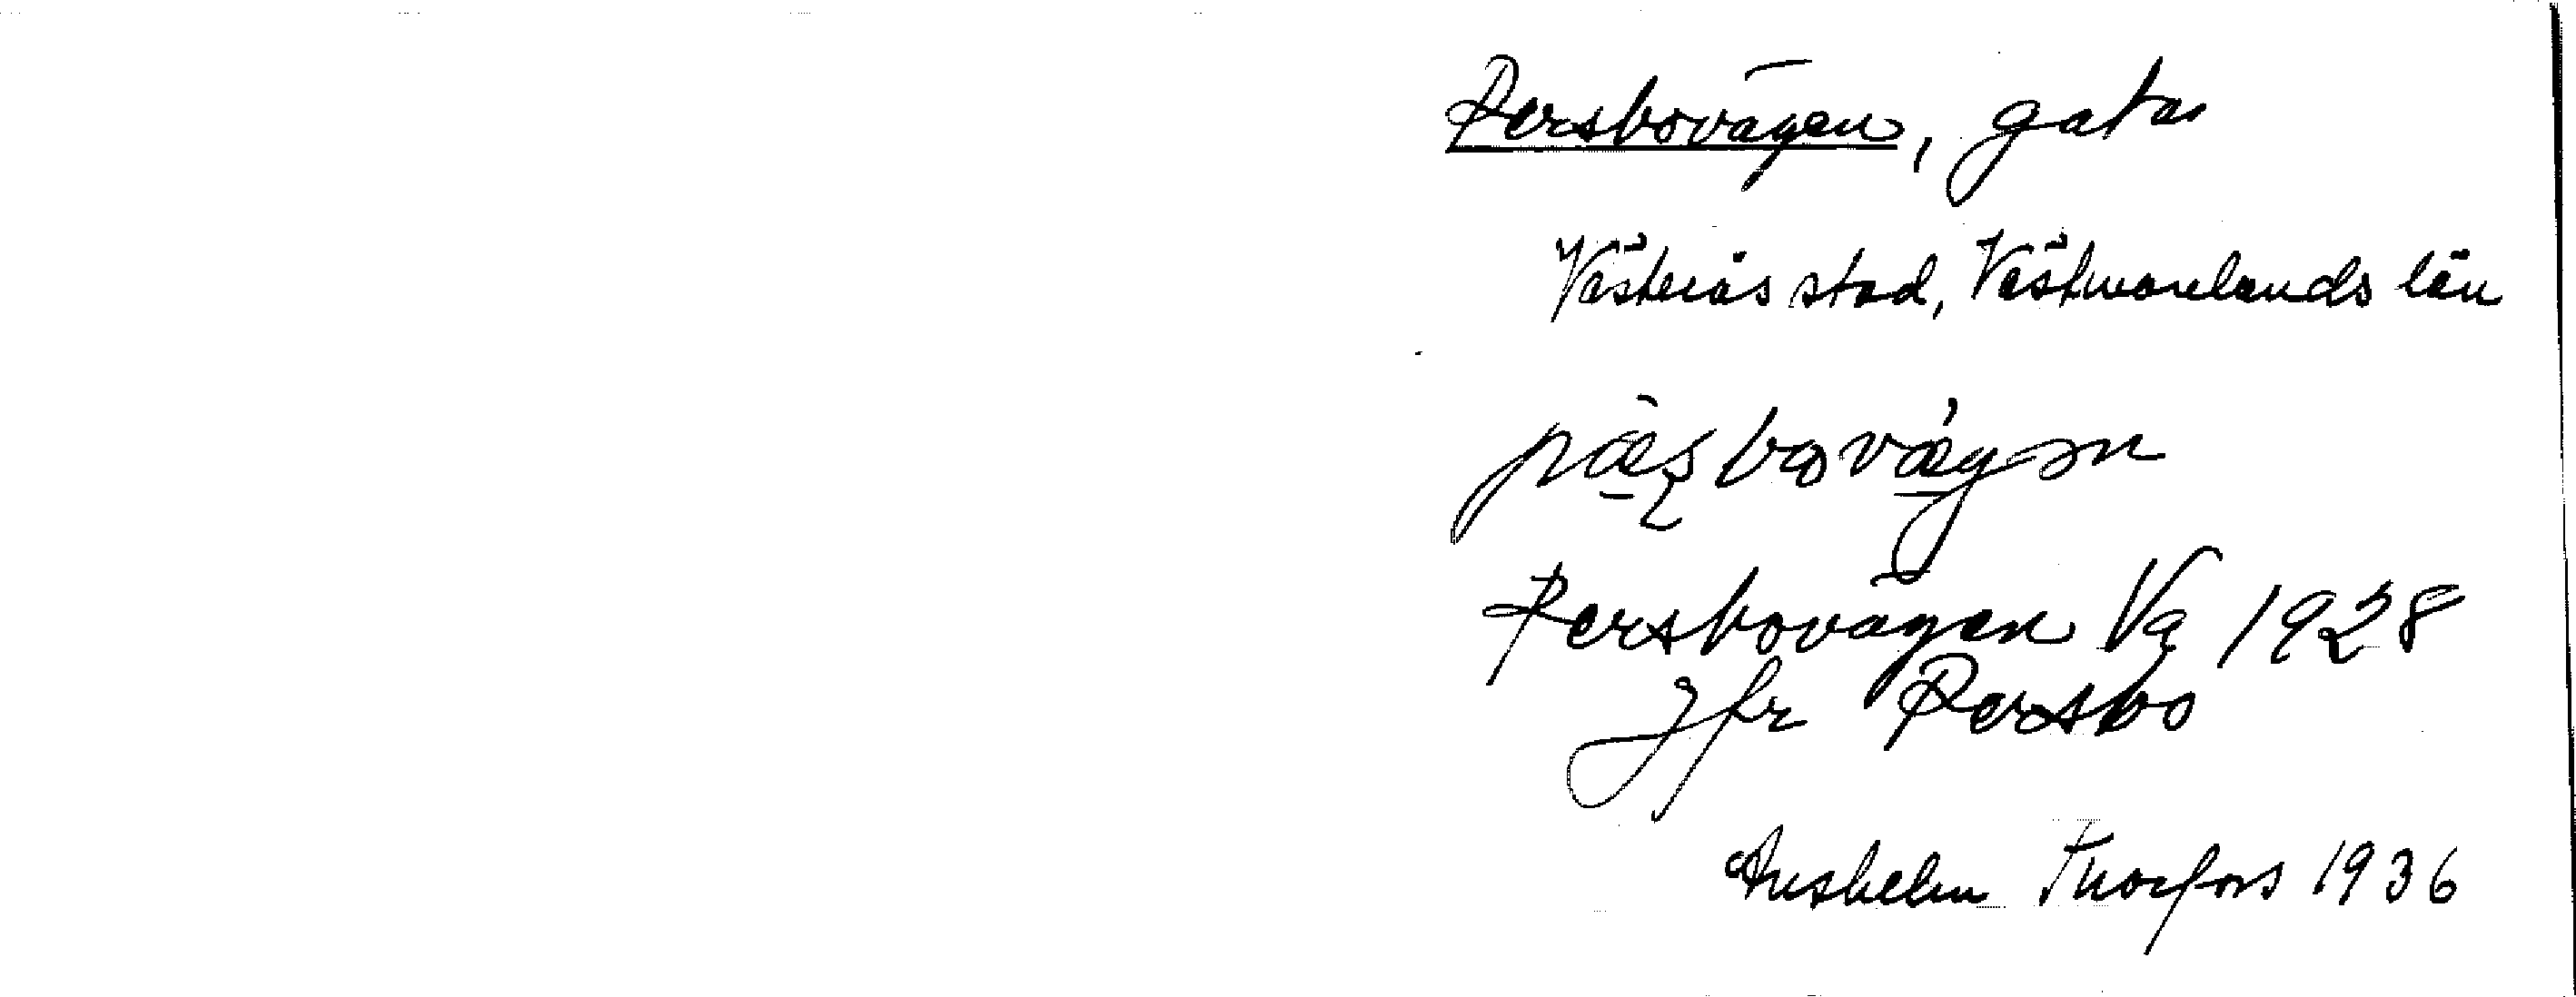 Persbovägen, gata
Västerås stad, Västmanlands län
pæ̀ṣbovǽgən
Persbovägen Va 1928
Jfr Persbo
Anshelm Thorfors 1936